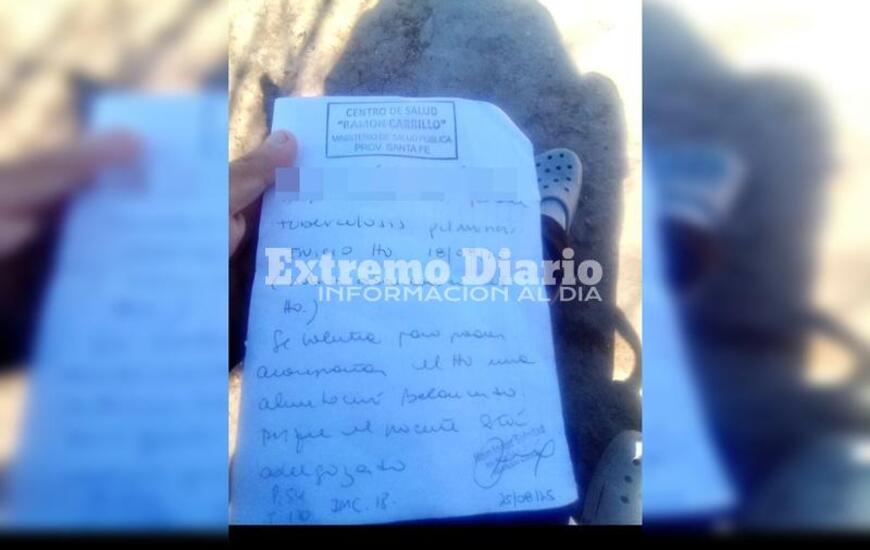 CENTRO DE SALUD
"RAMON CARRILLO"
MINISTERIO DE SALUD PUBLICA
PROV. SANTA FE
tuberculosis pulmonar
Inicio tto 18/
Extremo Diario
INFORMACION AL DIA
tto.)
Se solicita para poder
acompañar el tto una
alimentación Balanceada
porque el paciente está
adelgazado
P: 54 IMC: 18.
25/08/25